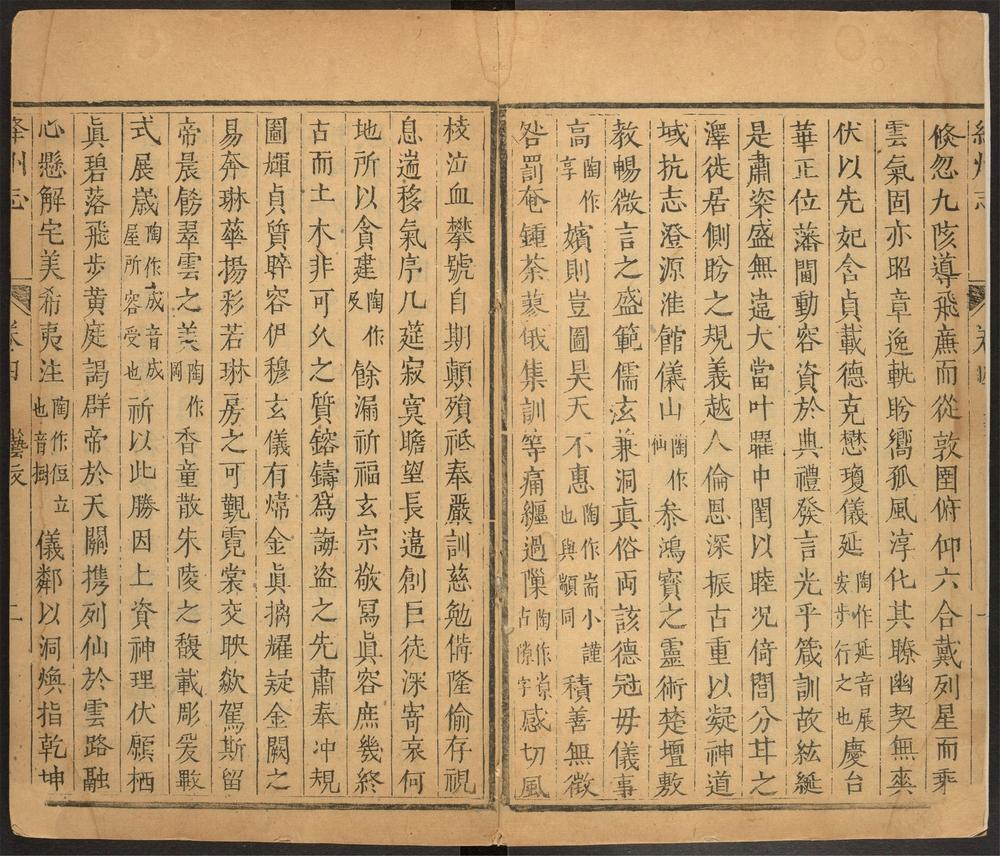 倏忽九陔導飛廉而從敦圄俯仰六合戴列星而乘
雲氣固亦昭章逸軌肹嚮孤風淳化其瞭幽契無爽
伏以先妃含貞載德克懋瓊儀延陶作延音展安步行之也慶台
華正位藩閫動容資於典禮發言光乎箴訓故紘綖
是肅粢盛無違大當叶曜中閨以睦况倚閭分甘之
澤徙居側肹之規義越人倫恩深振古重以凝神道
域抗志澄源淮館儀山陶作仙叅鴻寳之靈術楚壇敷
教暢微言之盛範儒玄兼洞真俗両該德冠毋儀事
高陶作享嬪則豈圖昊天不惠陶作耑小謹也與顓同積善無徵
咎罰奄鍾荼蓼俄集訓等痛纏過隟陶作𡭴古隙字感切風
枝泣血攀號自期顛殞祗奉嚴訓慈勉備隆偷存視
息遄移氣序几筵寂寞瞻望長違創巨徒深寄哀何
地所以貪建陶作及餘漏祈福玄宗敬冩眞容庶幾終
古而土木非可久之質鎔鑄爲誨盗之先肅奉冲規
圖輝貞質睟容伊穆玄儀有煒金眞摛耀疑金闕之
易奔琳華揚彩若琳房之可覿霓裳交映歘駕斯留
帝晨餝翠雲之美陶作冈香童散朱陵之馥載彫爰斁
式展嵗陶作成音成屋所容受也祈以此勝因上資神理伏願栖
眞碧落飛歩黄庭謁群帝於天關携列仙於雲路融
心懸解宅美希夷注陶作侸立也音樹儀鄰以洞煥指乾坤
絳州志 卷四 藝文 二